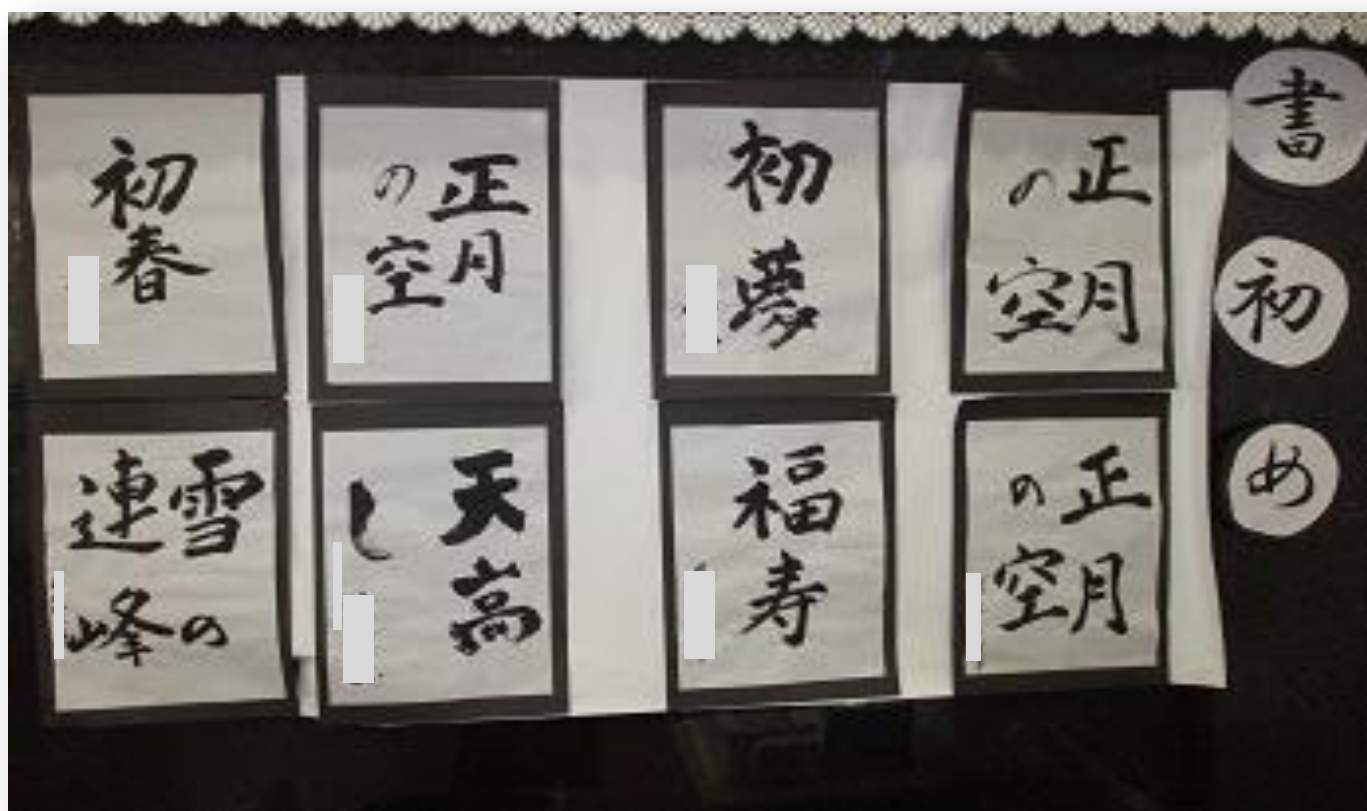 書初め
正月
の空
初夢
正月
の空
初春
正月
の空
福寿
天高
し
雪の
連峰